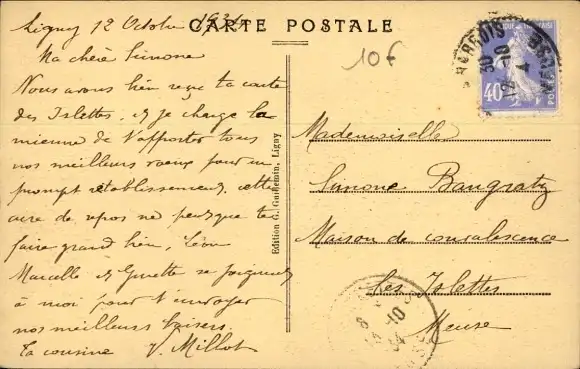 CARTE POSTALE
Ligny 12 Octobre
Ma chère Simone
Nous avons bien reçu ta carte
des Islettes, et je charge la
mienne de t'apporter tous
nos meilleurs vœux pour un
prompt rétablissement, cette
cure de repos ne peut que te
faire grand bien, Léon
Marcelle et Ginette se joignent
à moi pour t'envoyer
nos meilleurs baisers.
ta cousine V. Millot
Edition G. Guillemin, Ligny
10 F
40
12 -10
Mademoiselle
Simone Bangratz
Maison de convalescence
Les Islettes
Meuse